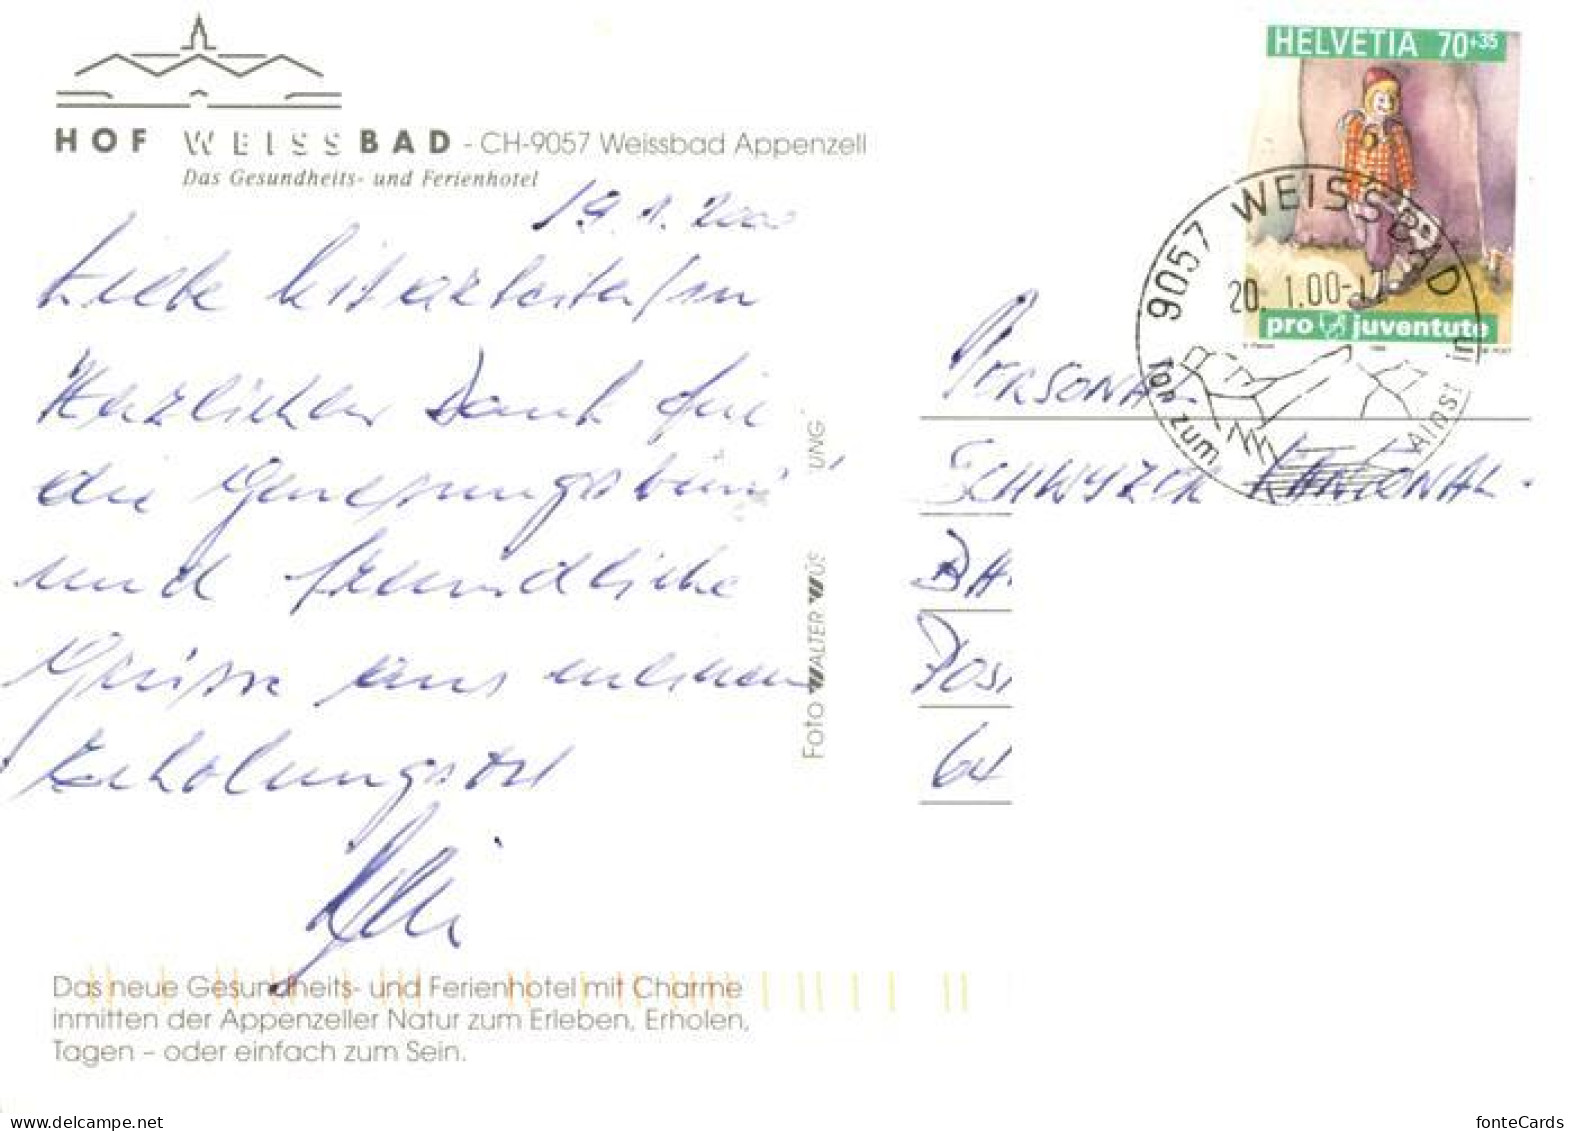 HOF WEISSBAD - CH-9057 Weissbad Appenzell
Das Gesundheits- und Ferienhotel
19.1.2000
Liebe Mitarbeiter/in
Herzlichen Dank für
die Genesungswünsche
und freundliche
Grüsse aus meinem
Erholungsort
Das neue Gesundheits- und Ferienhotel mit Charme
inmitten der Appenzeller Natur zum Erleben, Erholen,
Tagen – oder einfach zum Sein.
Foto WALTER
UNG
HELVETIA 70+35
pro juventute
9057 WEISSBAD
20.1.00-12
Tor zum
Alpst in
PERSONAL
SCHWYZER KANTONAL-
BA
POS
64
fonteCards
delcampe.net